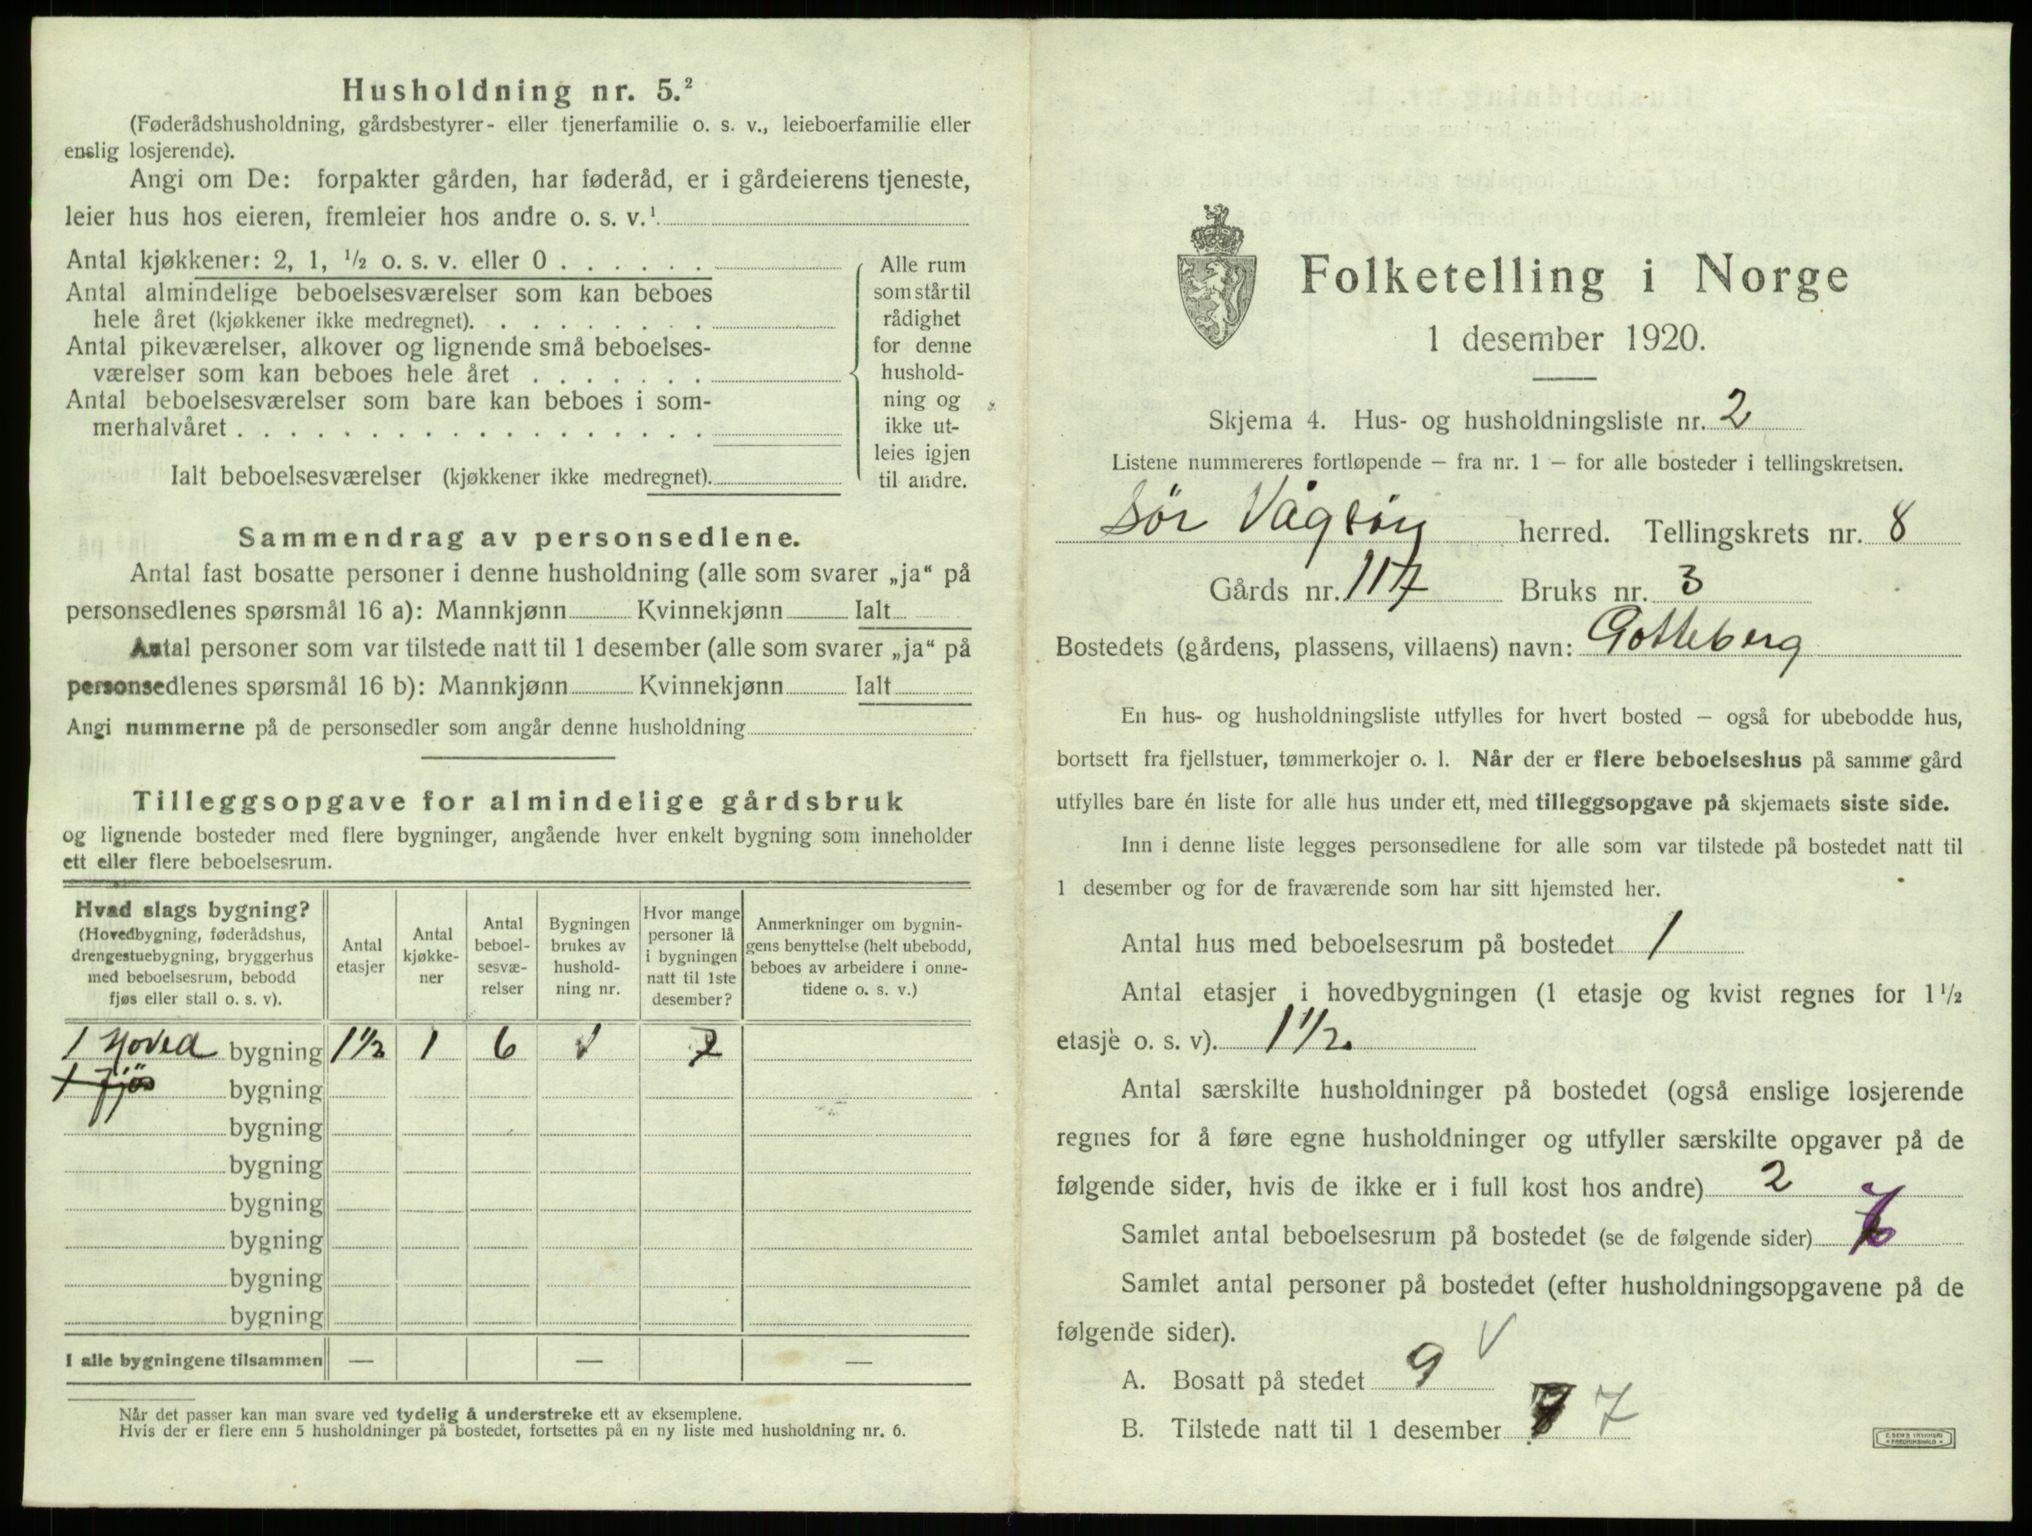 Husholdning nr. 5.²
(Føderådshusholdning, gårdsbestyrer- eller tjenerfamilie o. s. v., leieboerfamilie eller
enslig losjerende).
Angi om De: forpakter gården, har føderåd, er i gårdeierens tjeneste,
leier hus hos eieren, fremleier hos andre o. s. v.¹
Antal kjøkkener: 2, 1, ½ o. s. v. eller 0 . . . . . .
Antal almindelige beboelsesværelser som kan beboes
hele året (kjøkkener ikke medregnet). . . . . . . . .
Antal pikeværelser, alkover og lignende små beboelses-
værelser som kan beboes hele året . . . . . . .
Antal beboelsesværelser som bare kan beboes i som-
merhalvåret . . . . . . . . . . . . . . . . . .
Ialt beboelsesværelser (kjøkkener ikke medregnet).
Alle rum
som står til
rådighet
for denne
hushold-
ning og
ikke ut-
leies igjen
til andre.
Sammendrag av personsedlene.
Antal fast bosatte personer i denne husholdning (alle som svarer „ja“ på
personsedlenes spørsmål 16 a): Mannkjønn Kvinnekjønn Ialt
Antal personer som var tilstede natt til 1 desember (alle som svarer „ja“ på
personsedlenes spørsmål 16 b): Mannkjønn Kvinnekjønn Ialt
Angi nummerne på de personsedler som angår denne husholdning
Tilleggsopgave for almindelige gårdsbruk
og lignende bosteder med flere bygninger, angående hver enkelt bygning som inneholder
ett eller flere beboelsesrum.
Hvad slags bygning?
(Hovedbygning, føderådshus,
drengestuebygning, bryggerhus
med beboelsesrum, bebodd
fjøs eller stall o. s. v).
Antal
etasjer
Antal
kjøkke-
ner
Antal
beboel-
sesvæ-
relser
Bygningen
brukes av
hushold-
ning nr.
Hvor mange
personer lå
i bygningen
natt til 1ste
desember?
Anmerkninger om bygnin-
gens benyttelse (helt ubebodd,
beboes av arbeidere i onne-
tidene o. s. v.)
1 Hoved bygning 1½ 1 6 1 7
1 Fjøs bygning
bygning
bygning
bygning
bygning
bygning
bygning
I alle bygningene tilsammen — — —
Når det passer kan man svare ved tydelig å understreke ett av eksemplene.
Hvis der er flere enn 5 husholdninger på bostedet, fortsettes på en ny liste med husholdning nr. 6.
Folketelling i Norge
1 desember 1920.
Skjema 4. Hus- og husholdningsliste nr. 2
Listene nummereres fortløpende – fra nr. 1 – for alle bosteder i tellingskretsen.
Sør Vågsøy herred. Tellingskrets nr. 8
Gårds nr. 117 Bruks nr. 3
Bostedets (gårdens, plassens, villaens) navn: Gotteberg
En hus- og husholdningsliste utfylles for hvert bosted – også for ubebodde hus,
bortsett fra fjellstuer, tømmerkojer o. l. Når der er flere beboelseshus på samme gård
utfylles bare én liste for alle hus under ett, med tilleggsopgave på skjemaets siste side.
Inn i denne liste legges personsedlene for alle som var tilstede på bostedet natt til
1 desember og for de fraværende som har sitt hjemsted her.
Antal hus med beboelsesrum på bostedet 1
Antal etasjer i hovedbygningen (1 etasje og kvist regnes for 1½
etasje o. s. v). 1½.
Antal særskilte husholdninger på bostedet (også enslige losjerende
regnes for å føre egne husholdninger og utfyller særskilte opgaver på de
følgende sider, hvis de ikke er i full kost hos andre) 2
Samlet antal beboelsesrum på bostedet (se de følgende sider)
Samlet antal personer på bostedet (efter husholdningsopgavene på de
følgende sider).
A. Bosatt på stedet 9 V
B. Tilstede natt til 1 desember 7